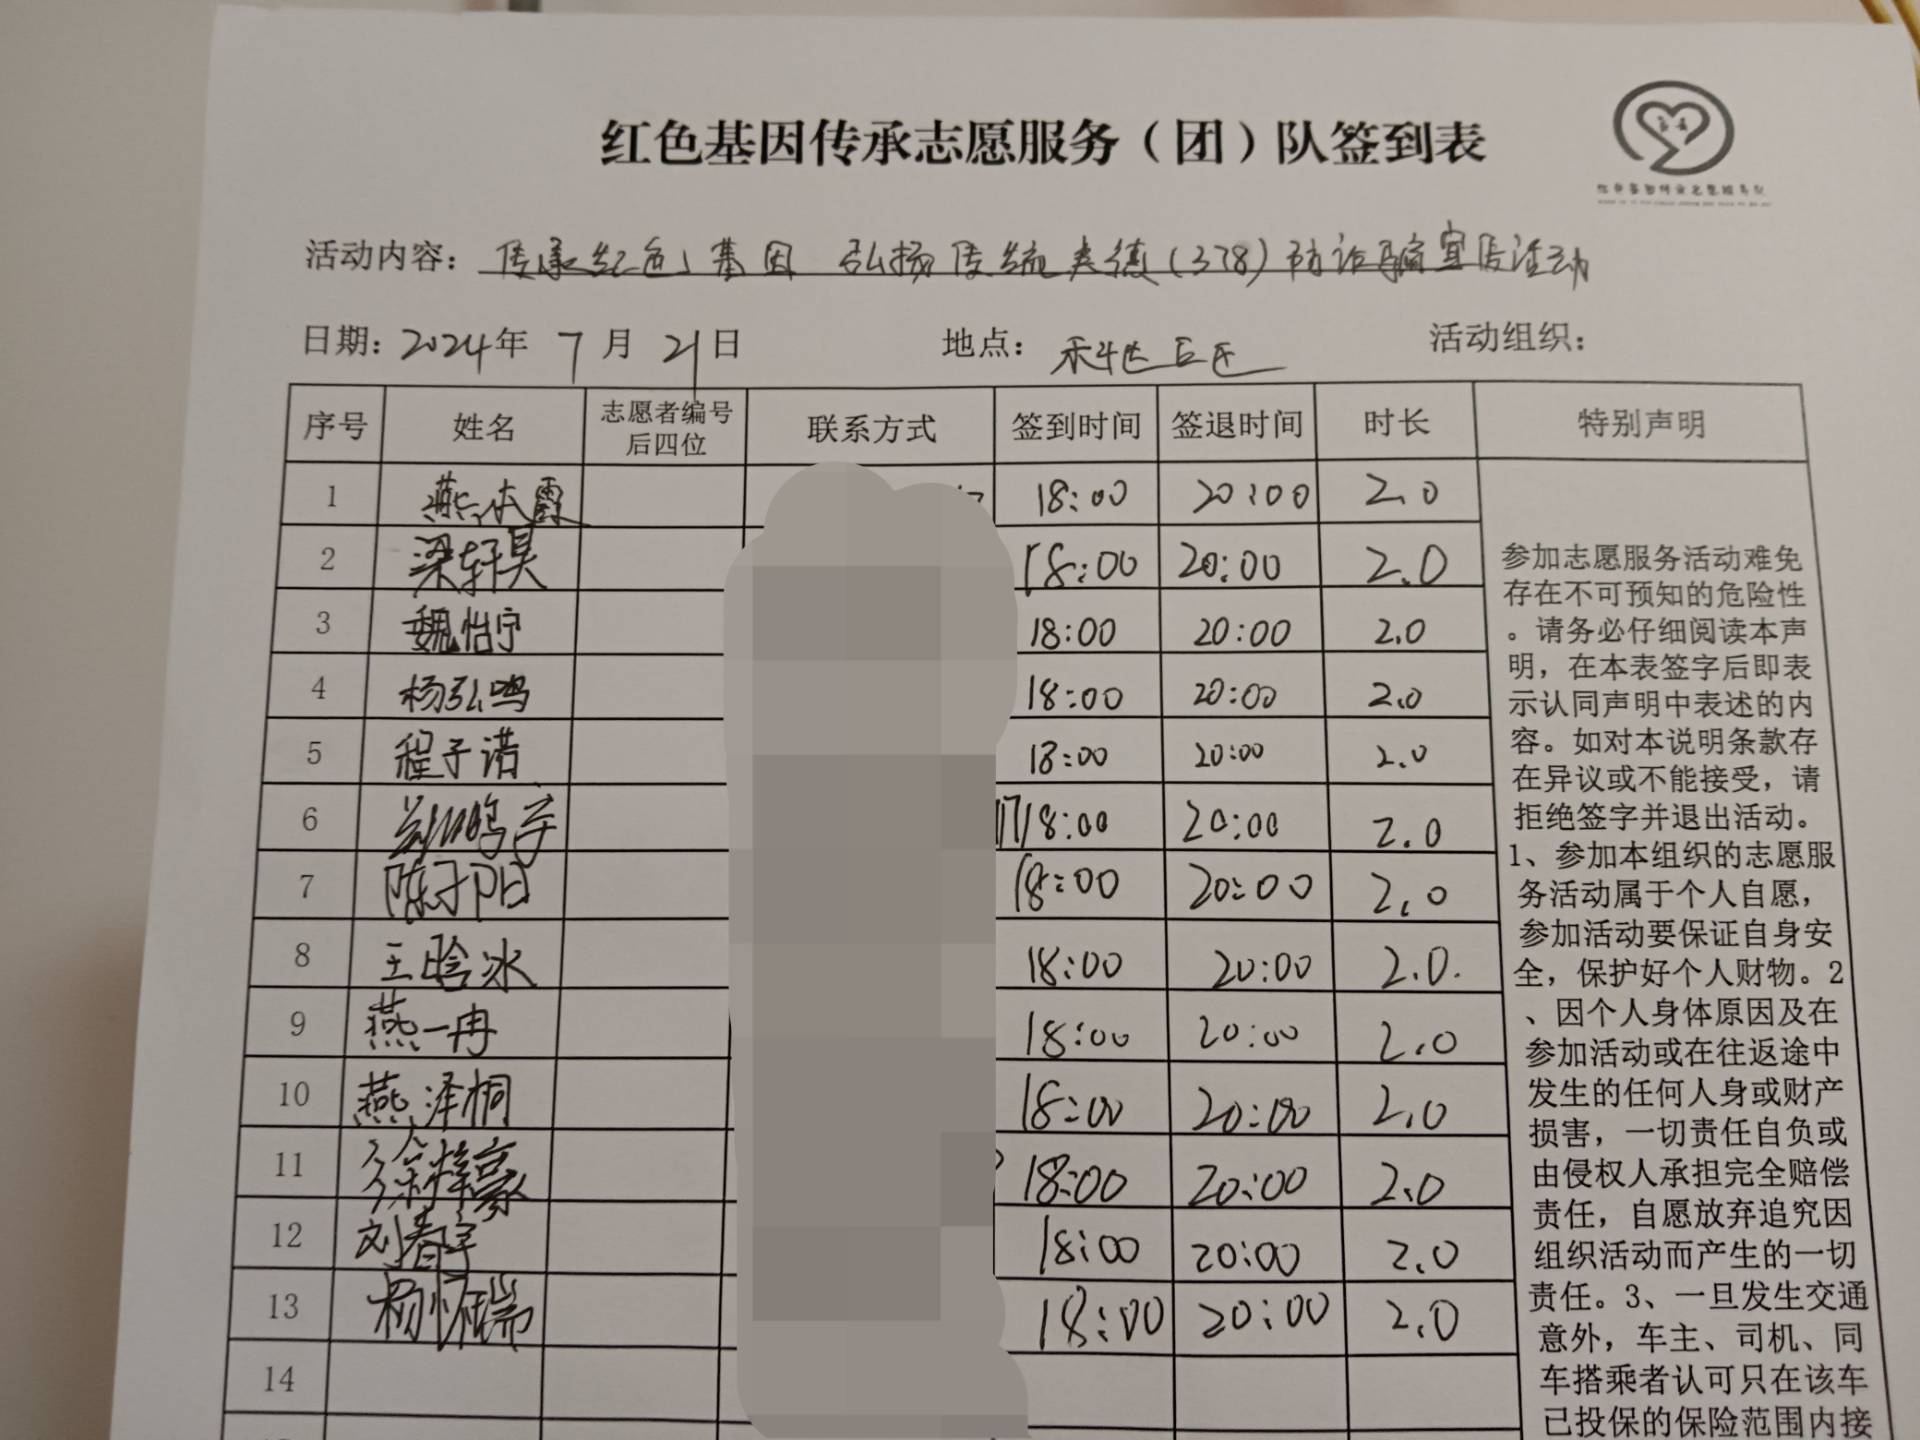 红色基因传承志愿服务（团）队签到表
活动内容：传承红色基因 弘扬传统美德(378)防诈骗宣传活动
日期：2024年 7 月 21日 地点： 活动组织：
序号 姓名 志愿者编号后四位 联系方式 签到时间 签退时间 时长 特别声明
1 燕水霞 18:00 20:00 2.0
2 梁轩昊 18:00 20:00 2.0
3 魏怡宁 18:00 20:00 2.0
4 杨弘鸣 18:00 20:00 2.0
5 程子诺 18:00 20:00 2.0
6 18:00 20:00 2.0
7 陈子阳 18:00 20:00 2.0
8 王晗冰 18:00 20:00 2.0
9 燕一冉 18:00 20:00 2.0
10 燕泽桐 18:00 20:00 2.0
11 徐梓豪 18:00 20:00 2.0
12 刘春宇 18:00 20:00 2.0
13 18:00 20:00 2.0
14
参加志愿服务活动难免
存在不可预知的危险性
。请务必仔细阅读本声
明，在本表签字后即表
示认同声明中表述的内
容。如对本说明条款存
在异议或不能接受，请
拒绝签字并退出活动。
1、参加本组织的志愿服
务活动属于个人自愿，
参加活动要保证自身安
全，保护好个人财物。2
、因个人身体原因及在
参加活动或在往返途中
发生的任何人身或财产
损害，一切责任自负或
由侵权人承担完全赔偿
责任，自愿放弃追究因
组织活动而产生的一切
责任。3、一旦发生交通
意外，车主、司机、同
车搭乘者认可只在该车
已投保的保险范围内接